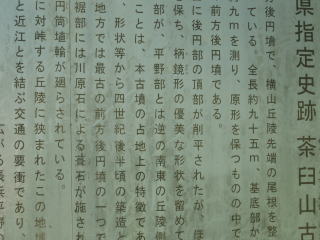 県指定史跡 茶臼山古
方後円墳で、横山丘陵先端の尾根を整
ている。全長約九十五m、基底部か
九mを測り、原形を保つものの中で
前方後円墳である。
に後円部の頂部が削平されたが、ほ
保ち、柄鏡形の優美な形状を留めて
部が、平野部とは逆の南東の丘陵側
ことは、本古墳の占地上の特徴であ
、形状等から四世紀後半頃の築造と
地方では最古の前方後円墳の一つで
裾部には川原石による葺石が施され
円筒埴輪が廻らされている。
に対峙する丘陵に狭まれたこの地
と近江とを結ぶ交通の要衝であり、
広がる長浜平野